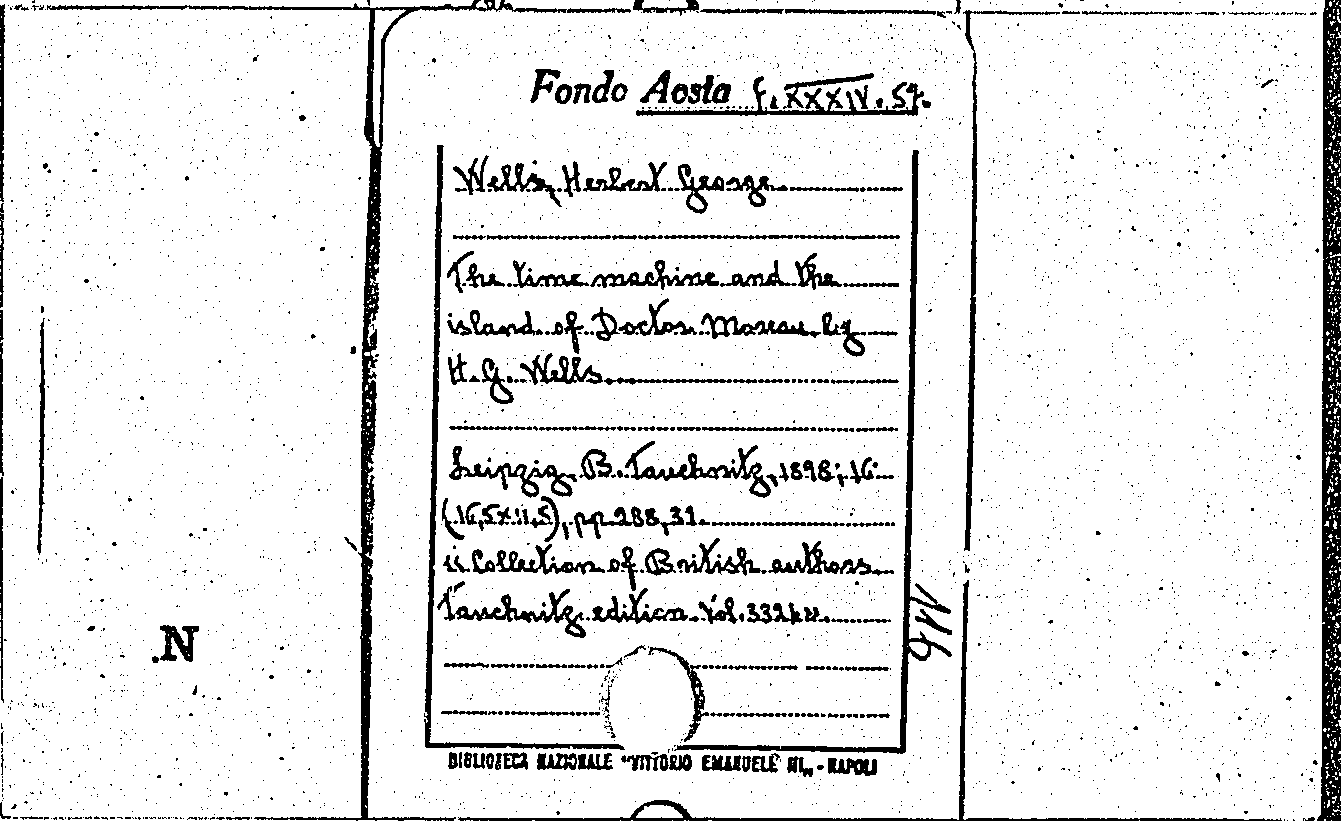 Fondo Aosta f. XXXIV. 57.
Wells, Herbert George
The time machine and the
island of Doctor Moreau by
H. G. Wells...
Leipzig, B. Tauchnitz, 1898; 16°
(16,5x11,5), pp. 288, 32.
"Collection of British authors.
Tauchnitz edition. Vol. 3324".
116
N.
BIBLIOTECA NAZIONALE "VITTORIO EMANUELE III„ - NAPOLI